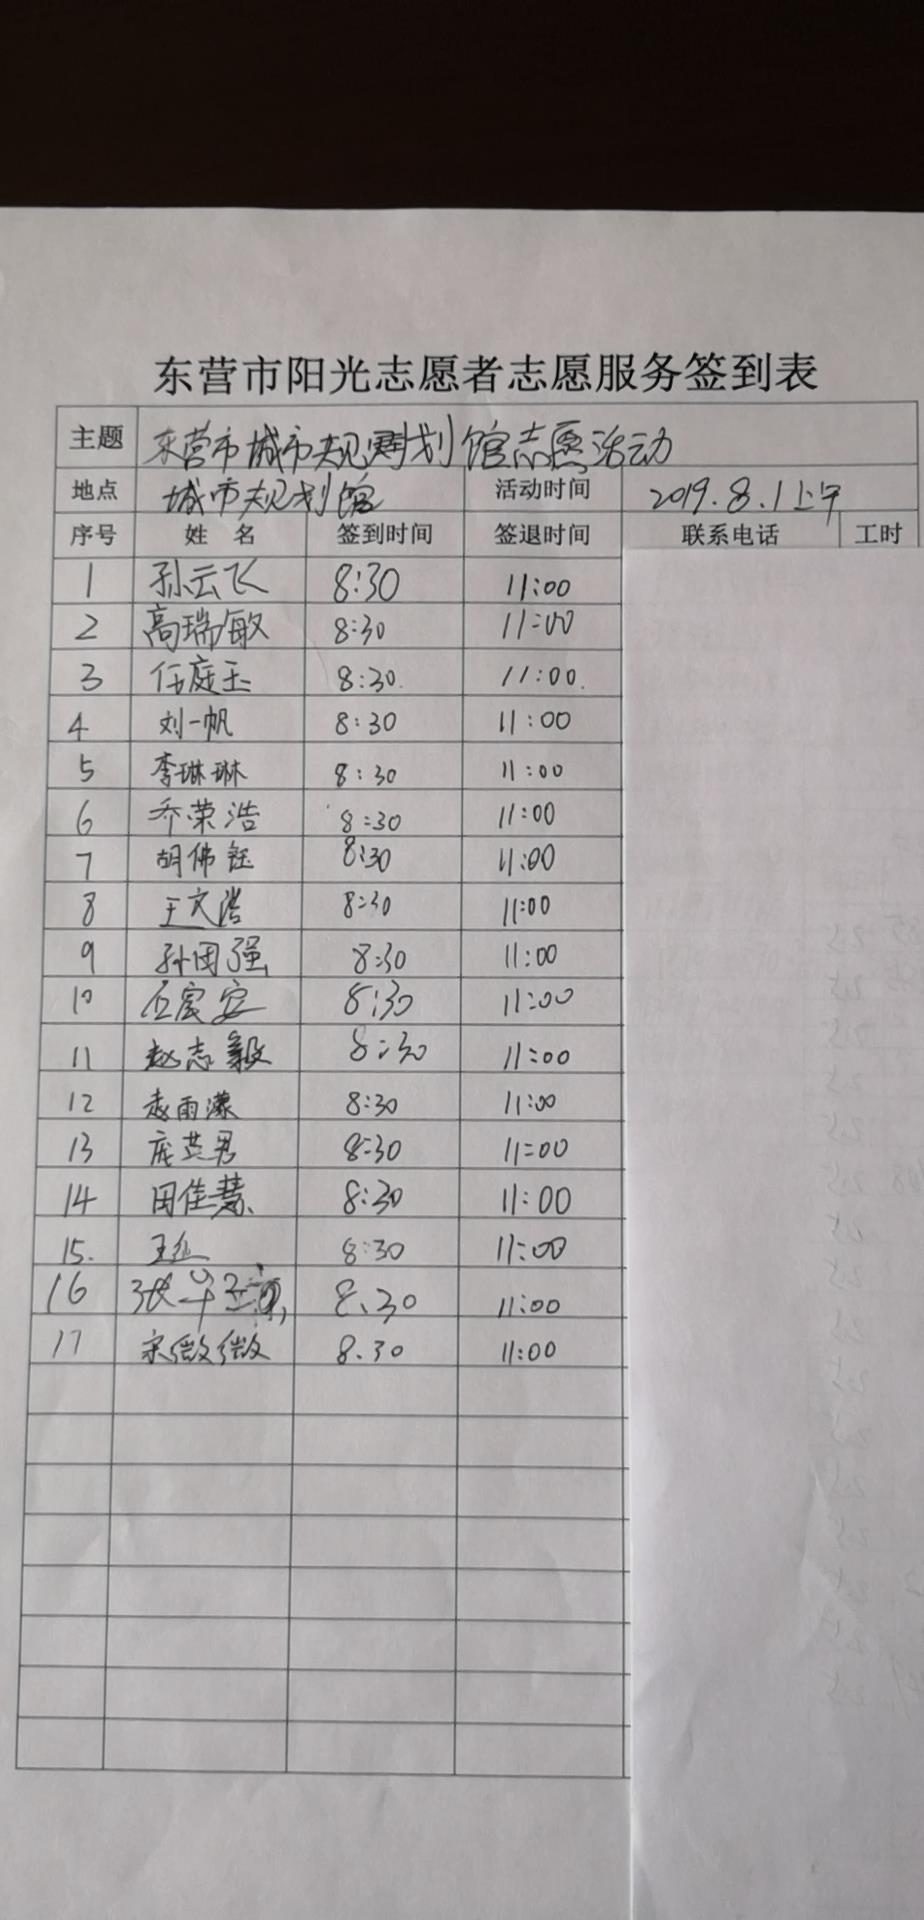 东营市阳光志愿者志愿服务签到表
主题 东营市城市规划馆志愿活动
地点 城市规划馆 活动时间 2019.8.1上午
序号 姓名 签到时间 签退时间 联系电话 工时
1 孙云飞 8:30 11:00
2 高瑞敏 8:30 11:00
3 任庭玉 8:30. 11:00.
4 刘一帆 8:30 11:00
5 李琳琳 8:30 11:00
6 乔荣浩 8:30 11:00
7 胡佛钰 8:30 11:00
8 王文浩 8:30 11:00
9 孙国强 8:30 11:00
10 8:30 11:00
11 赵志毅 8:30 11:00
12 赵雨濛 8:30 11:00
13 庞英男 8:30 11:00
14 田佳慧 8:30 11:00
15. 王 8:30 11:00
16 张 8.30 11:00
17 宋微微 8.30 11:00